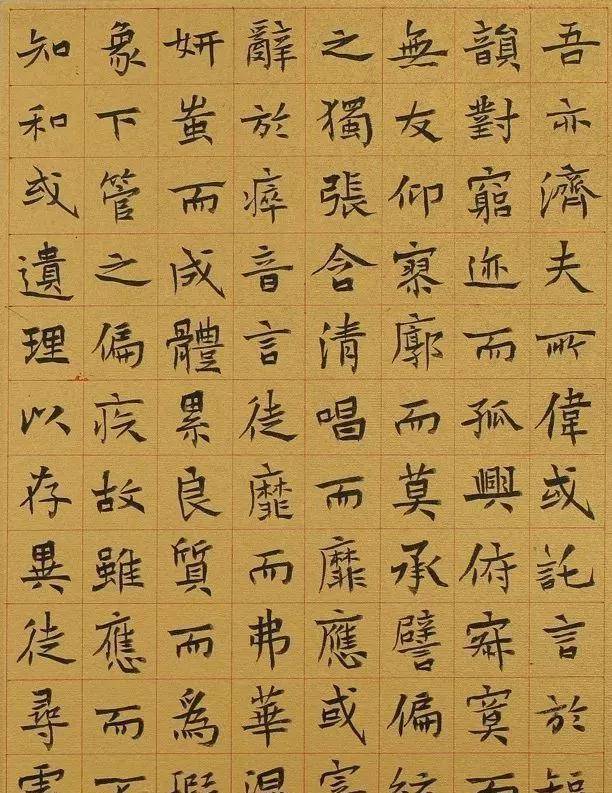 吾亦濟夫所偉或託言於短
韻對窮迹而孤興俯寂寞而
無友仰寥廓而莫承譬偏
之獨張含清唱而靡應或
辭於瘁音言徒靡而弗華混
妍蚩而成體累良質而為瑕
象下管之偏疾故雖應而不
知和或遺理以存異徒尋